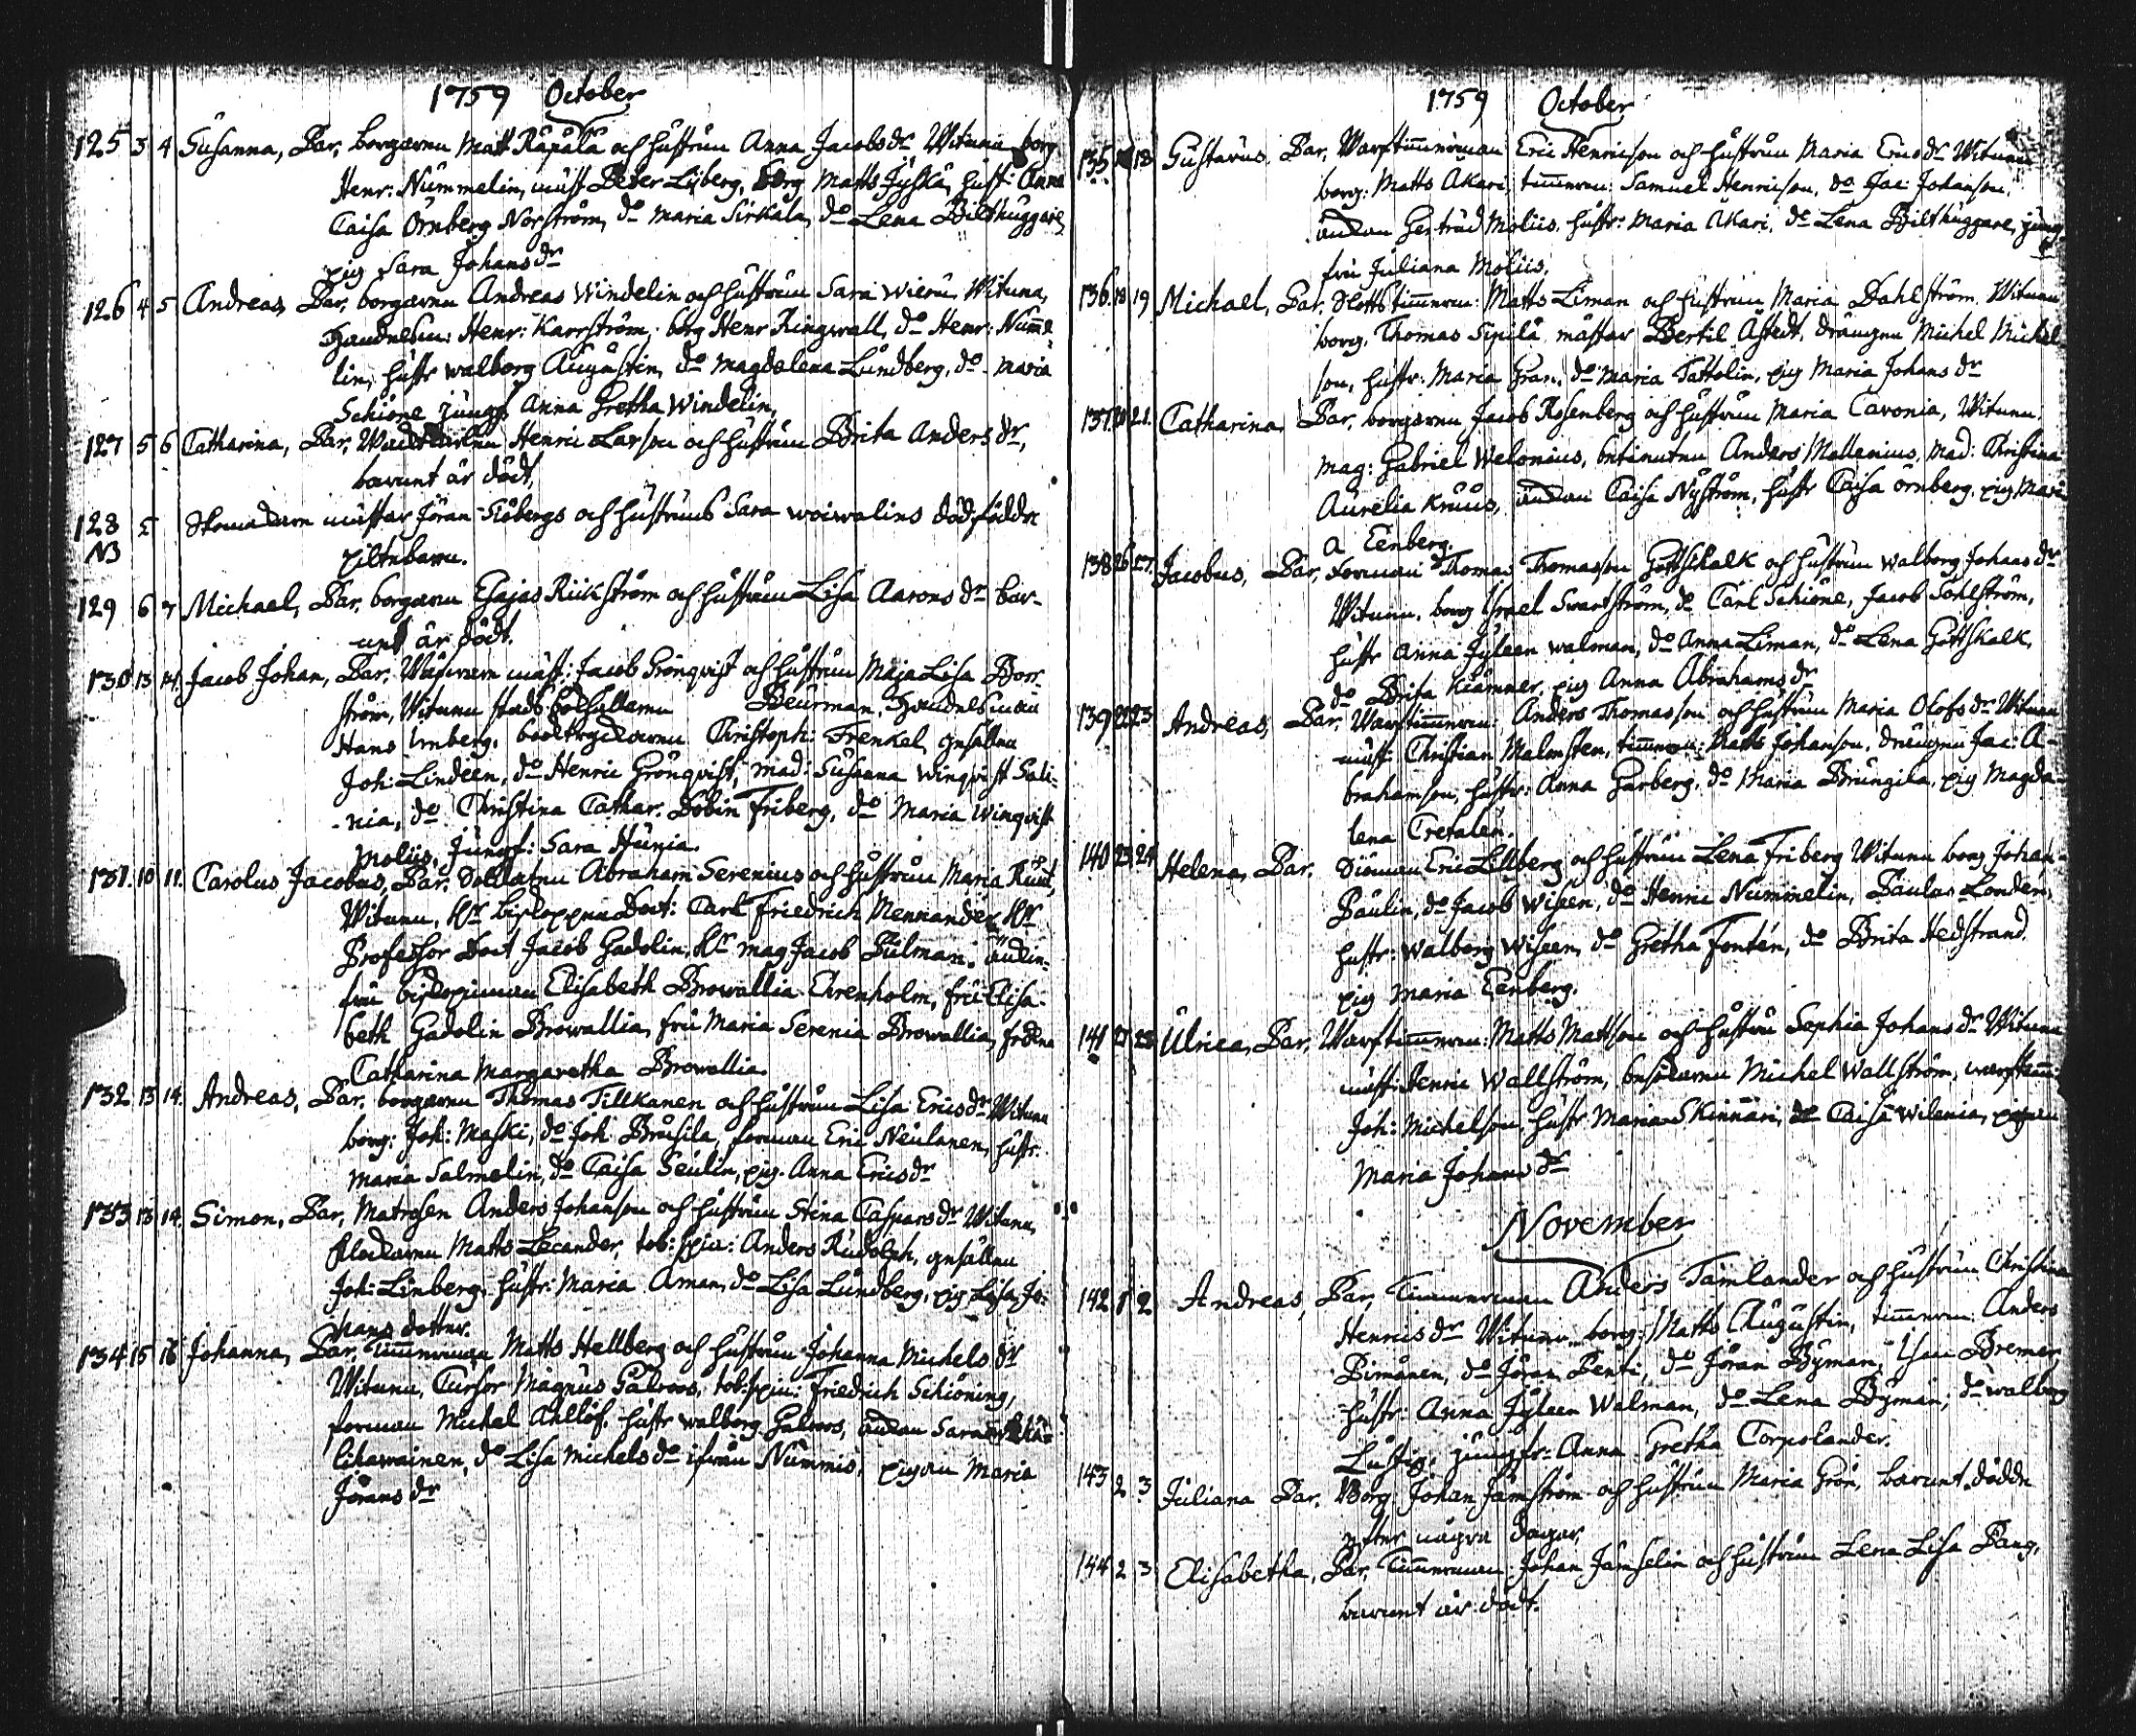 1759 October
125 3 4 Susanna, Par, borgaren Matt Räpälä och hustrun Anna Jacobs dr Witnena borg
Henr: Nummelin, mäst Peter Liberg, borg Matts Jyskä, hust: Anna
Caisa Örnberg Norström, do Maria Sirkala, do Lena Bilthuggare,
pig Sara Johans dr
126 4 5 Andreas, Par, borgaren Andreas Windelin och hustrun Sara Wieru, Witnena,
Handelsm: Henr: Karrström, borg Henr Ringwall, do Henr: Numme
lin, hustr Walborg Augustin, do Magdalena Lundberg, do Maria
Schiöne jungf Anna Gretha Windelin,
127 5 6 Catharina, Par, Henric Larson och hustrun Brita Anders dr,
barnet är dödt,
128 5 Skomakare mästar Jöran Siöbergs och hustruns Sara Woiwalins dödfödde
NB piltebarn.
129 6 7 Michael, Par, borgaren Esajas Riikström och hustrun Lisa Aarons dr bar-
net är dödt.
130 13 14. Jacob Johan, Par, mäst: Jacob Grönqvist och hustrun Maja Lisa Borr-
ström, Witnena stads Beurman, Handelsman
Hans Urnberg, boktryckaren Christoph: Frenkel, gesällen
Joh: Lindeen, do Henric Grönqvist, mad: Susanna Winqvist Sali-
nia, do Christina Cathar. Dobin Friberg, do Maria Winqvist
Moliis, Jungf: Sara Hunia.
131. 10 11. Carolus Jacobus, Par, Soldaten Abraham Serenius och hustrun Maria Ruut,
Witnena, Hr biskoppen Doct: Carl Friedrich Mennander, Hr
Professor Doct Jacob Gadolin, Hr Mag Jacob Pulman. änkin-
fru biskopinnan Elisabeth Browallia Ehrenholm, fru Elisa-
beth Gadolin Browallia, fru Maria Serenia Browallia, fröken
Catharina Margaretha Browallia.
132 13 14. Andreas, Par, borgaren Thomas Tillkanen och hustrun Lisa Erics dr Witnena
borg: Joh: Maski, do Joh Brusila, forman Eric Neulanen, hustr:
Maria Salmelin, do Caisa Seulin, pig. Anna Erics dr
133 13 14. Simon, Par, Matrosen Anders Johanson och hustrun Stina Caspars dr Witnena,
klockaren Matts Lecander, tob: spin: Anders Rudolph, gesällen
Joh: Linberg, hustr: Maria Aman, do Lisa Lundberg, pig Lisa Jo-
hans dotter.
134 15 16 Johanna, Par, Timmerman Matts Hellberg och hustrun Johanna Michels dr
Witnena, Cursor Magnus Galroos, tob: spin: Friedrich Schiöning,
forman Michel Anllöf. hustr Walborg Galroos, änkan Sara
likawainen, do Lisa Michels do ifrån Nummis, pigan Maria
Jörans dr
1759 October
135 18 Gustavus, Par, Warftimmerman Eric Henricson och hustrun Maria Erics dr Witnena
borg: Matts Akari timmerm: Samuel Henricson, do Jac: Johanson,
änkan Gertrud Moliis, hustr: Maria Akari, do Lena Bilthuggare, jung-
fru Juliana Moliis.
136. 18 19 Michael, Par, Slotts timmerm: Matts Liman och hustrun Maria Dahlström. Witnena
borg. Thomas Sipilä mästar Bertil Åstedt, drängen Michel Michel
son, hustr: Maria Gran, do Maria Tattolin, pig Maria Johans dr
137. 21. Catharina, Par, borgaren Jacob Rosenberg och hustrun Maria Cavonia, Witnena,
Mag: Gabriel Welonius, Anders Mollenius, Mad: Christina
Aurelia Kruus, änkan Caisa Nyström, hustr Caisa Örnberg, pig Mari
a Eenberg.
138 26 27. Jacobus, Par, Forman Thomas Thomasson Gottschalk och hustrun Walborg Johans dr
Witnena, borg Israel Swartström, do Carl Schiöne, Jacob Sohlström,
hustr Anna Jyleen Walman, do Anna Liman, do Lena Gottskalk,
do Brita Kiämner, pig Anna Abrahams dr
139 22 23 Andreas, Par, Warftimmerm: Anders Thomasson och hustrun Maria Olofs dr Witnena
mäst: Christian Malmsten, timmerm: Matts Johanson, drängen Jac: A-
brahamson, hustr: Anna Garberg, do Maria Brungila, pig Magda-
lena Cretalen.
140 23 24 Helena, Par, Siöman Eric Lillberg och hustrun Lena Friberg Witnena borg Johan
Paulin, do Jacob Wiseen, do Henric Nummelin, Paulus Londen,
hustr: Walborg Wiseen, do Gretha Fonten, do Brita Hedstrand
pig Maria Eenberg.
141 27 28 Ulrica, Par, Warftimmerm: Matts Mattson och hustru Sophia Johans dr Witnena
mäst: Henric Wallström, Michel Wallström, warftimm:
Joh: Michelson, hustr Maria Skinnari, do Caisa Wilenia, pigan
Maria Johans dr
November
142 1 2 Andreas, Par, Timmerman Anders Tamlander och hustrun Christina
Henrics dr Witnena borg: Matts Augustin, timmerm: Anders
Pimänen, do Jöran Penti, do Jöran Byman, Bremer
hustr: Anna Jyleen Walman, do Lena Byman, do Walborg
Lustig, jungfr: Anna Gretha Torpolander.
143 2 3 Juliana Par, Borg Johan Jamström och hustrun Maria Grön, barnet dödde
efter några dagar,
144 2 3 Elisabetha, Par, Timmerman Johan Jamselin och hustrun Lena Lisa Pang,
barnet är dödt.